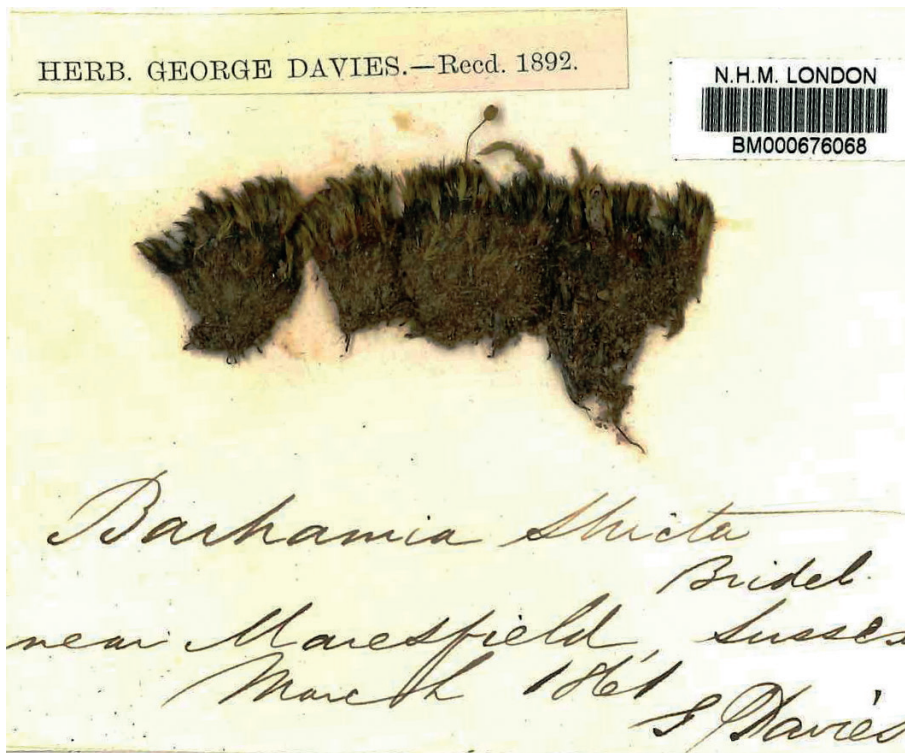 HERB. GEORGE DAVIES.—Recd. 1892.
N.H.M. LONDON
BM000676068
Barhamia stricta
Bridel.
near Maresfield, Sussex
March 1861
G Davies